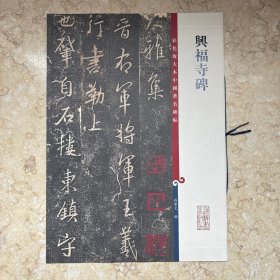 興福寺碑
彩色放大本中國著名碑帖
孫寶文 編
大雅集
晉右軍將軍王羲
行書勒上
肇自石樓東鎮守